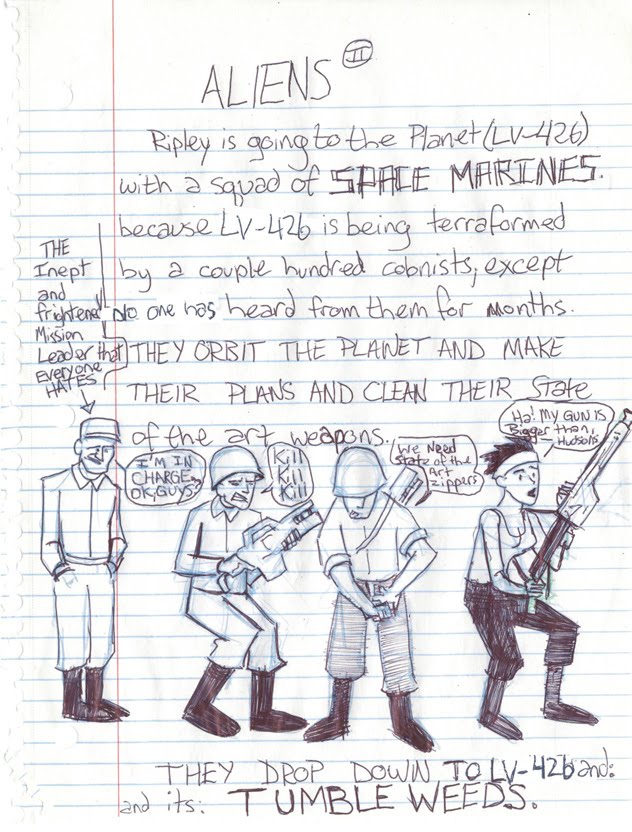 ALIENS II
Ripley is going to the Planet (LV-426)
with a squad of SPACE MARINES.
because LV-426 is being terraformed
by a couple hundred colonists, except
No one has heard from them for months.
THEY ORBIT THE PLANET AND MAKE
THEIR PLANS AND CLEAN THEIR State
of the art weapons.
THE
Inept
and
frightened
Mission
Leader that
everyone
HATES
I'M IN
CHARGE,
OK, GUYS?
Kill
Kill
Kill
We Need
State of the
Art
Zippers
Ha! MY GUN IS
Bigger than,
Hudsons
THEY DROP DOWN TO LV-426 and:
and its: TUMBLE WEEDS.